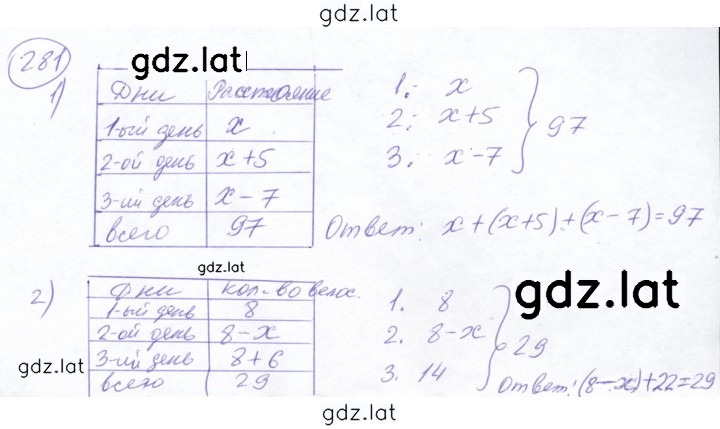 gdz.lat
281
gdz.lat
1)
Дни Расстояние
1-ый день x
2-ой день x+5
3-ий день x-7
всего 97
1. x
2. x+5
3. x-7
97
Ответ: x+(x+5)+(x-7)=97
gdz.lat
2)
Дни кол-во велос.
1-ый день 8
2-ой день 8-x
3-ий день 8+6
всего 29
1. 8
2. 8-x
3. 14
29
gdz.lat
Ответ: (8-x)+22=29
gdz.lat
gdz.lat